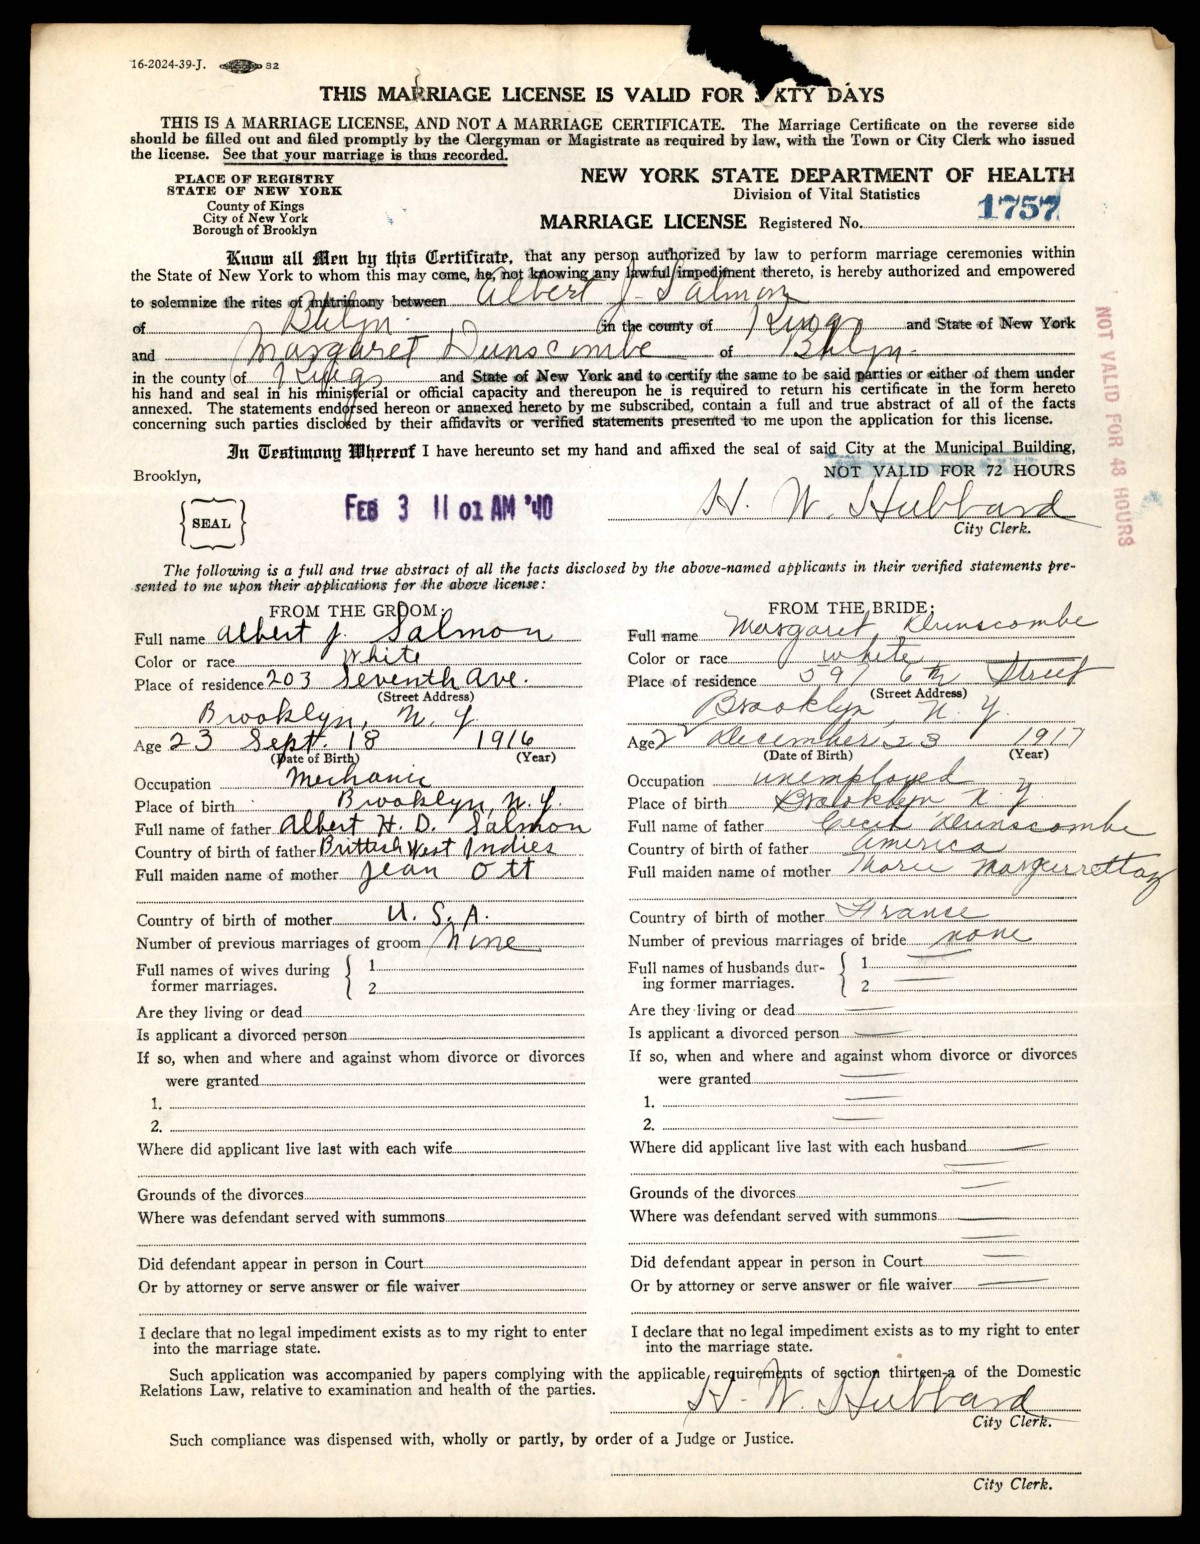 16-2024-39-J. 82
THIS MARRIAGE LICENSE IS VALID FOR SIXTY DAYS
THIS IS A MARRIAGE LICENSE, AND NOT A MARRIAGE CERTIFICATE. The Marriage Certificate on the reverse side
should be filled out and filed promptly by the Clergyman or Magistrate as required by law, with the Town or City Clerk who issued
the license. See that your marriage is thus recorded.
PLACE OF REGISTRY
STATE OF NEW YORK
County of Kings
City of New York
Borough of Brooklyn
NEW YORK STATE DEPARTMENT OF HEALTH
Division of Vital Statistics
MARRIAGE LICENSE Registered No. 1757
Know all Men by this Certificate, that any person authorized by law to perform marriage ceremonies within
the State of New York to whom this may come, he, not knowing any lawful impediment thereto, is hereby authorized and empowered
to solemnize the rites of matrimony between Albert J. Salmon
of Bklyn. in the county of Kings and State of New York
and Margaret Dunscombe of Bklyn.
in the county of Kings and State of New York and to certify the same to be said parties or either of them under
his hand and seal in his ministerial or official capacity and thereupon he is required to return his certificate in the form hereto
annexed. The statements endorsed hereon or annexed hereto by me subscribed, contain a full and true abstract of all of the facts
concerning such parties disclosed by their affidavits or verified statements presented to me upon the application for this license.
In Testimony Whereof I have hereunto set my hand and affixed the seal of said City at the Municipal Building,
Brooklyn,
NOT VALID FOR 72 HOURS
NOT VALID FOR 48 HOURS
SEAL
FEB 3 11 01 AM '40
H. W. Hubbard
City Clerk.
The following is a full and true abstract of all the facts disclosed by the above-named applicants in their verified statements pre-
sented to me upon their applications for the above license:
FROM THE GROOM:
Full name Albert J. Salmon
Color or race White
Place of residence 203 Seventh Ave.
(Street Address)
Brooklyn, N. Y.
Age 23 Sept. 18 1916
(Date of Birth) (Year)
Occupation Mechanic
Place of birth Brooklyn, N. Y.
Full name of father Albert H. D. Salmon
Country of birth of father British West Indies
Full maiden name of mother Jean Ott
Country of birth of mother U. S. A.
Number of previous marriages of groom None
Full names of wives during
former marriages.
1
2
Are they living or dead
Is applicant a divorced person
If so, when and where and against whom divorce or divorces
were granted
1.
2.
Where did applicant live last with each wife
Grounds of the divorces
Where was defendant served with summons
Did defendant appear in person in Court
Or by attorney or serve answer or file waiver
I declare that no legal impediment exists as to my right to enter
into the marriage state.
FROM THE BRIDE:
Full name Margaret Dunscombe
Color or race white
Place of residence 597 6th Street
(Street Address)
Brooklyn, N. Y.
Age 22 December 23 1917
(Date of Birth) (Year)
Occupation unemployed
Place of birth Brooklyn N. Y.
Full name of father Cecil Dunscombe
Country of birth of father America
Full maiden name of mother Marie
Country of birth of mother France
Number of previous marriages of bride none
Full names of husbands dur-
ing former marriages.
1
2
Are they living or dead
Is applicant a divorced person
If so, when and where and against whom divorce or divorces
were granted
1.
2.
Where did applicant live last with each husband
Grounds of the divorces
Where was defendant served with summons
Did defendant appear in person in Court
Or by attorney or serve answer or file waiver
I declare that no legal impediment exists as to my right to enter
into the marriage state.
Such application was accompanied by papers complying with the applicable requirements of section thirteen-a of the Domestic
Relations Law, relative to examination and health of the parties.
H. W. Hubbard
City Clerk.
Such compliance was dispensed with, wholly or partly, by order of a Judge or Justice.
City Clerk.